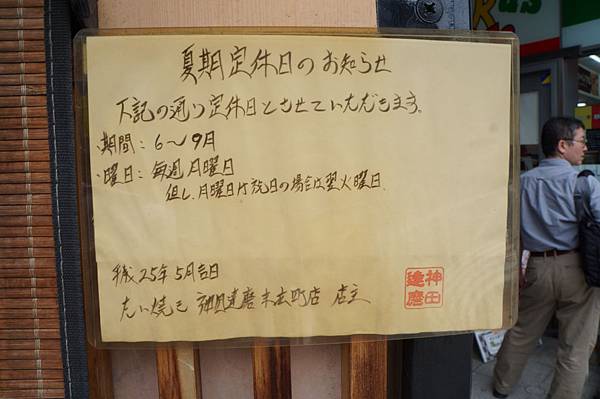 夏期定休日のお知らせ
下記の通り定休日とさせていただきます。
・期間：6〜9月
・曜日：毎週月曜日
但し、月曜日が祝日の場合は翌火曜日
平成25年5月吉日
たい焼き 神田達磨 末広町店 店主
神田達磨